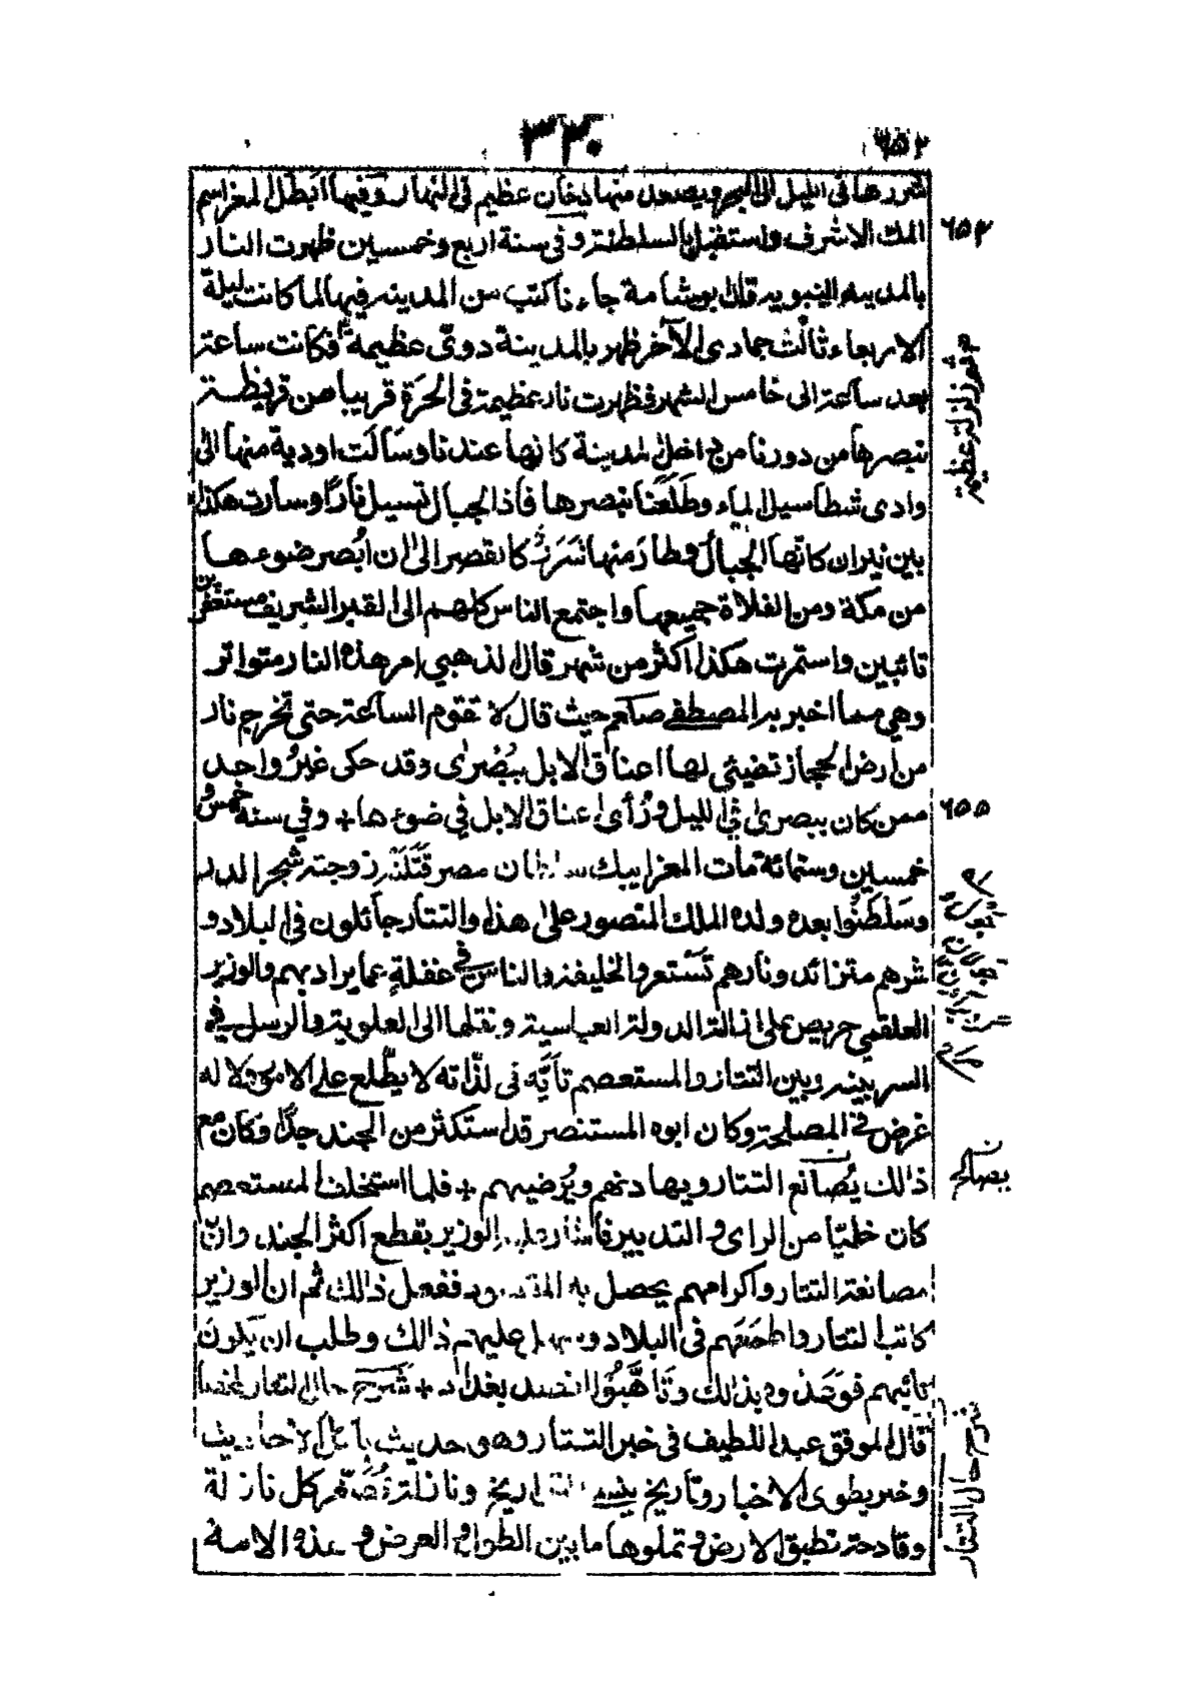 ٣٢٠
٦٥٢
شررها فى الليل الى البحر ويصعد منها دخان عظيم فى النهار وفيها ابطل المعز اسم
الملك الاشرف واستقل بالسلطنة وفى سنة اربع وخمسين ظهرت النار
بالمدينة النبوية قال ابو شامة جاءنا كتب من المدينة فيها لما كانت ليلة
الاربعاء ثالث جمادى الآخر ظهر بالمدينة دوىّ عظيمة فكانت ساعة
بعد ساعة الى خامس الشهر فظهرت نار عظيمة فى الحرّة قريبا من قريظة
نبصرها من دورنا من داخل المدينة كانها عندنا وسَالَت اودية منها الى
وادى شطا سيل الماء وطَلَعَنا نبصرها فاذا الجبال تسيل نارًا وسارت هكذا
بين نيران كانها الجبال وطار منها شرر كالقصر الى ان ابُصر ضوءها
من مكة ومن الفلاة جميعها واجتمع الناس كلهم الى القبر الشريف مستغفرين
تائبين واستمرت هكذا اكثر من شهر قال الذهبي امر هذه النار متواتر
وهي مما اخبر به المصطفى صلعم حيث قال لا تقوم الساعة حتى تخرج نار
من ارض الحجاز تضيئ لها اعناق الابل ببُصْرى وقد حكى غيرُ واحد
ممن كان ببصرى فى الليل ورُأى اعناق الابل فى ضوءها + وفي سنة خمس و
خمسين وستمائة مات المعز ايبك سلطان مصر قَتَلَتْه زوجته شجر الدر
وسَلطَنُوا بعده ولده الملك المنصور على هذا والتتار جائلون فى البلاد و
شرهم متزائد ونارهم تَسْتعر والخليفة والناس فى غفلةٍ عما يراد بهم والوزير
العلقمي حريص على ازالة الدولة العباسية ونقلها الى العلوية والرسل فى
السر بينه وبين التتار والمستعصم تأيّه فى لذّاته لا يطّلع على الامور ولا له
غرض فى المصلحة وكان ابوه المستنصر قد استكثر من الجند جدًّا وكان مع
ذالك يُصانع التتار ويهادنهم ويُرضيهم + فلما استخلف المستعصم
كان خليّا من الراى والتدبير فاشار عليه الوزير بقطع اكثر الجند وانّ
مصانعة التتار واكرامهم يحصل به المقصود ففعل ذالك ثم ان الوزير
كاتب التتار واطمعهم فى البلاد وسهل عليهم ذالك وطلب ان يكون
نائبهم فوعدوه بذالك وتَأهَّبُوا لقصد بغداد + شرح حال التتار ملخصا
قال الموفق عبد اللطيف فى خبر التتار وهو حديث يأكل الاحاديث
وخبر يطوى الاخبار وتاريخ ينسى التواريخ ونازلة تُصَغّر كل نازلة
وفادحة تطبق الارض وتملوها ما بين الطول والعرض وهذه الامة
٦٥٤
ظهور زلزلة عظيمة
٦٥٥
يصالح
شرح حال التتار